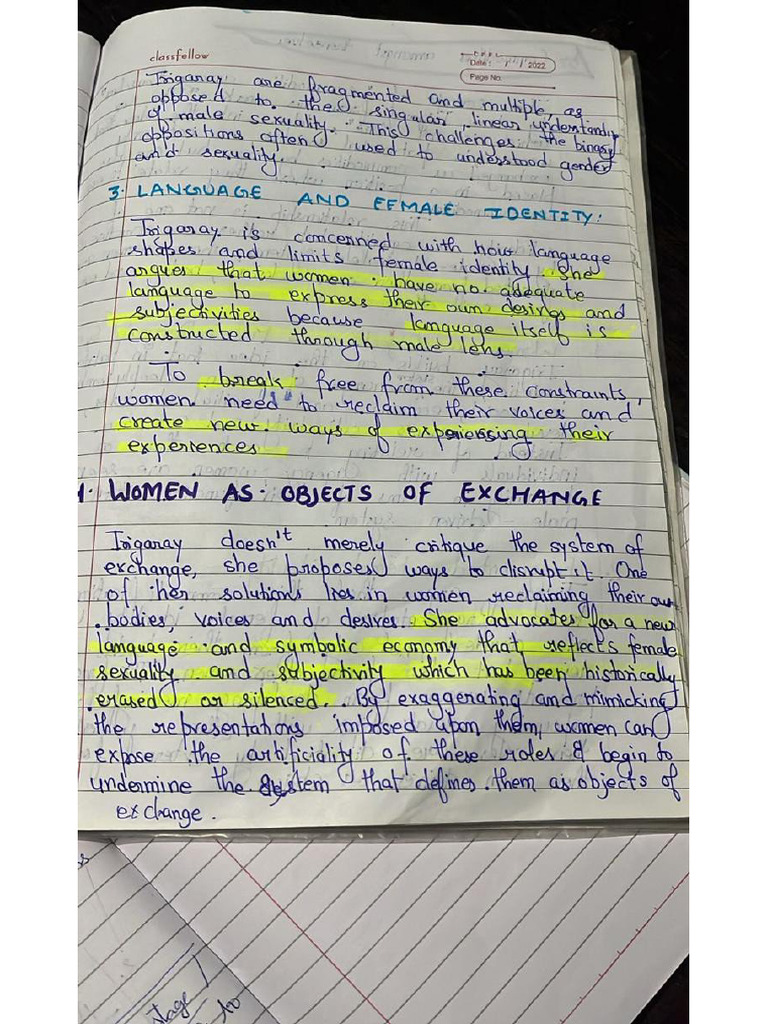 classfellow
Date : 2022
Page No.
Irigaray are fragmented and multiple, as
opposed to the singular, linear understanding
of male sexuality. This challenges the binary
oppositions often used to understood gender
and sexuality.
3. LANGUAGE AND FEMALE IDENTITY:
Irigaray is concerned with how language
shapes and limits female identity. She
argues that women have no adequate
language to express their own desires and
subjectivities because language itself is
constructed through male lens.
To break free from these constraints,
women need to reclaim their voices and
create new ways of their
experiences
4. WOMEN AS OBJECTS OF EXCHANGE
Irigaray doesn't merely critique the system of
exchange, she proposes ways to disrupt it. One
of her solutions lies in women reclaiming their own
bodies, voices and desires. She advocates for a new
language and symbolic economy that reflects female
sexuality and subjectivity which has been historically
erased or silenced. By exaggerating and mimicking
the representations imposed upon them, women can
expose the artificiality of these roles & begin to
undermine the system that defines them as objects of
exchange.
stage
to